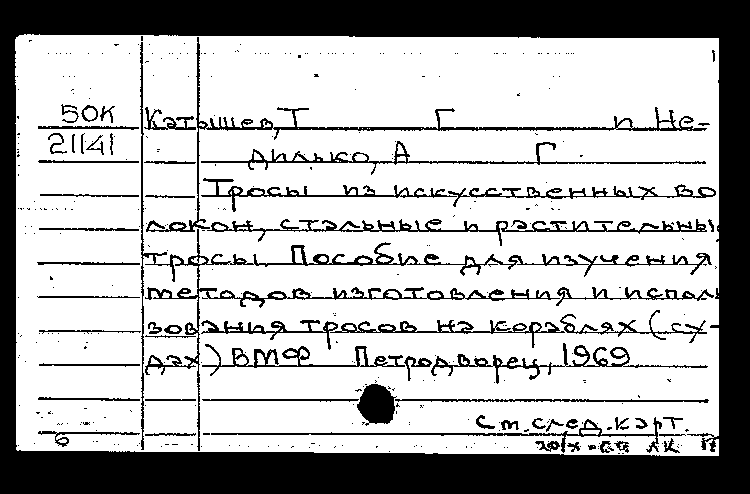 1
50К Катышев, Т Г и Не-
21141 дилько, А Г
Тросы из искусственных во
локон, стальные и растительны
тросы. Пособие для изучения
методов изготовления и исполь
зования тросов на кораблях (су-
дах) ВМФ Петродворец, 1969
См. след. карт.
6